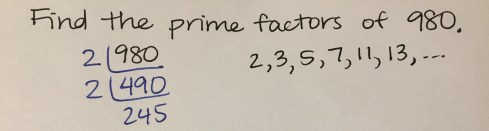 Find the prime factors of 980.
2 980 2, 3, 5, 7, 11, 13, ...
2 490
245